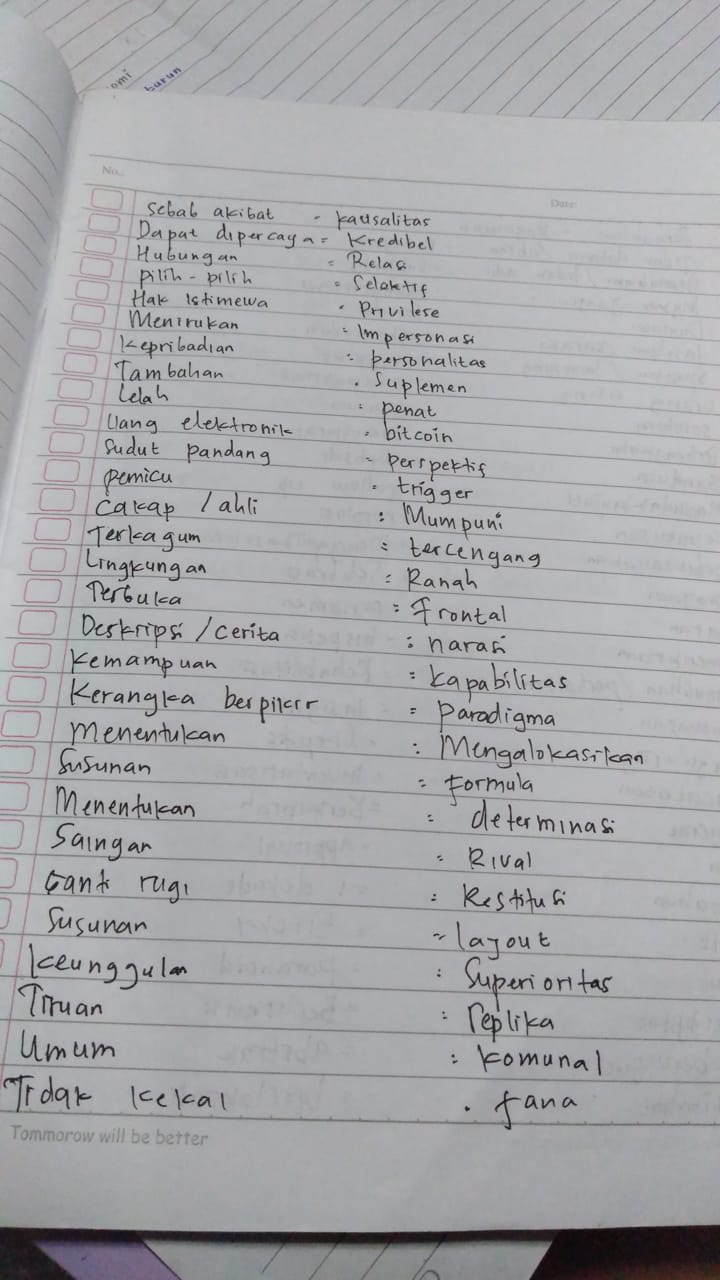 omi
barun
No.:
Date:
Sebab akibat - kausalitas
Dapat dipercaya = Kredibel
Hubungan = Relasi
pilih - pilih = Selektif
Hak Istimewa . Privilese
Menirukan : Impersonasi
Kepribadian : personalitas
Tambahan . Suplemen
Lelah : penat
Uang elektronik . bitcoin
Sudut pandang - perspektif
pemicu = trigger
Cakap / ahli : Mumpuni
Terkagum = tercengang
Lingkungan : Ranah
Terbuka = Frontal
Deskripsi / cerita : narasi
Kemampuan : kapabilitas
Kerangka berpikir = Paradigma
Menentukan : Mengalokasikan
Susunan = Formula
Menentukan : determinasi
Saingan = Rival
Ganti rugi : Restitusi
Susunan = layout
Keunggulan : Superioritas
Tiruan : replika
Umum : komunal
Tidak kekal . fana
Tommorow will be better